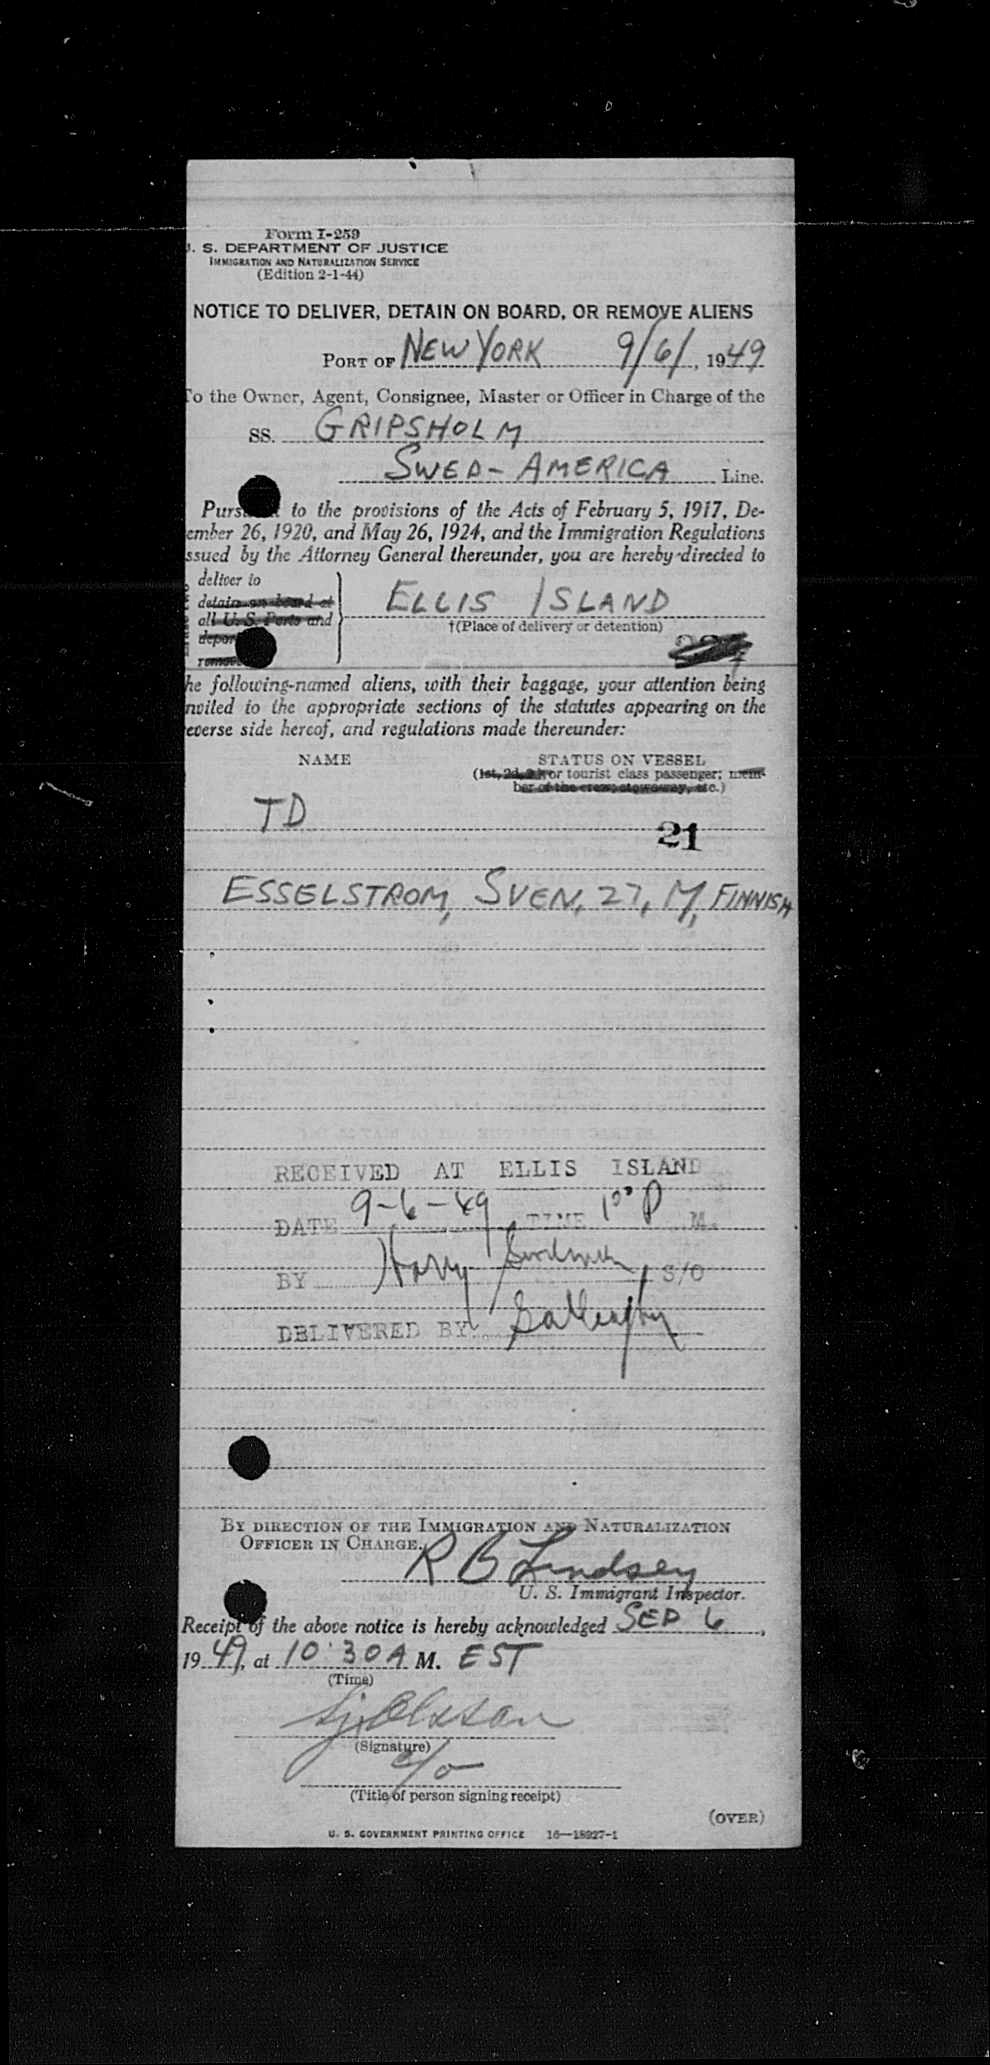 Form I-259
U. S. DEPARTMENT OF JUSTICE
IMMIGRATION AND NATURALIZATION SERVICE
(Edition 2-1-44)
NOTICE TO DELIVER, DETAIN ON BOARD, OR REMOVE ALIENS
PORT OF NEW YORK 9/6/, 1949
To the Owner, Agent, Consignee, Master or Officer in Charge of the
SS. GRIPSHOLM
SWED-AMERICA Line.
Pursuant to the provisions of the Acts of February 5, 1917, De-
cember 26, 1920, and May 26, 1924, and the Immigration Regulations
issued by the Attorney General thereunder, you are hereby directed to
deliver to
detain on board at
all U. S. Ports and
deport
remove
ELLIS ISLAND
†(Place of delivery or detention)
the following-named aliens, with their baggage, your attention being
invited to the appropriate sections of the statutes appearing on the
reverse side hereof, and regulations made thereunder:
NAME STATUS ON VESSEL
(1st, 2d, 3d, or tourist class passenger; mem-
ber of the crew; stowaway, etc.)
TD
21
ESSELSTROM, SVEN, 27, M, FINNISH
RECEIVED AT ELLIS ISLAND
DATE 9-6-49 TIME 1 00 P M.
BY Harry S/O
DELIVERED BY
BY DIRECTION OF THE IMMIGRATION AND NATURALIZATION
OFFICER IN CHARGE.
R B Lindsey
U. S. Immigrant Inspector.
Receipt of the above notice is hereby acknowledged SEP 6,
1949, at 10:30 A M. EST
(Time)
Olsson
(Signature)
c/o
(Title of person signing receipt)
(OVER)
U. S. GOVERNMENT PRINTING OFFICE 16—18927-1